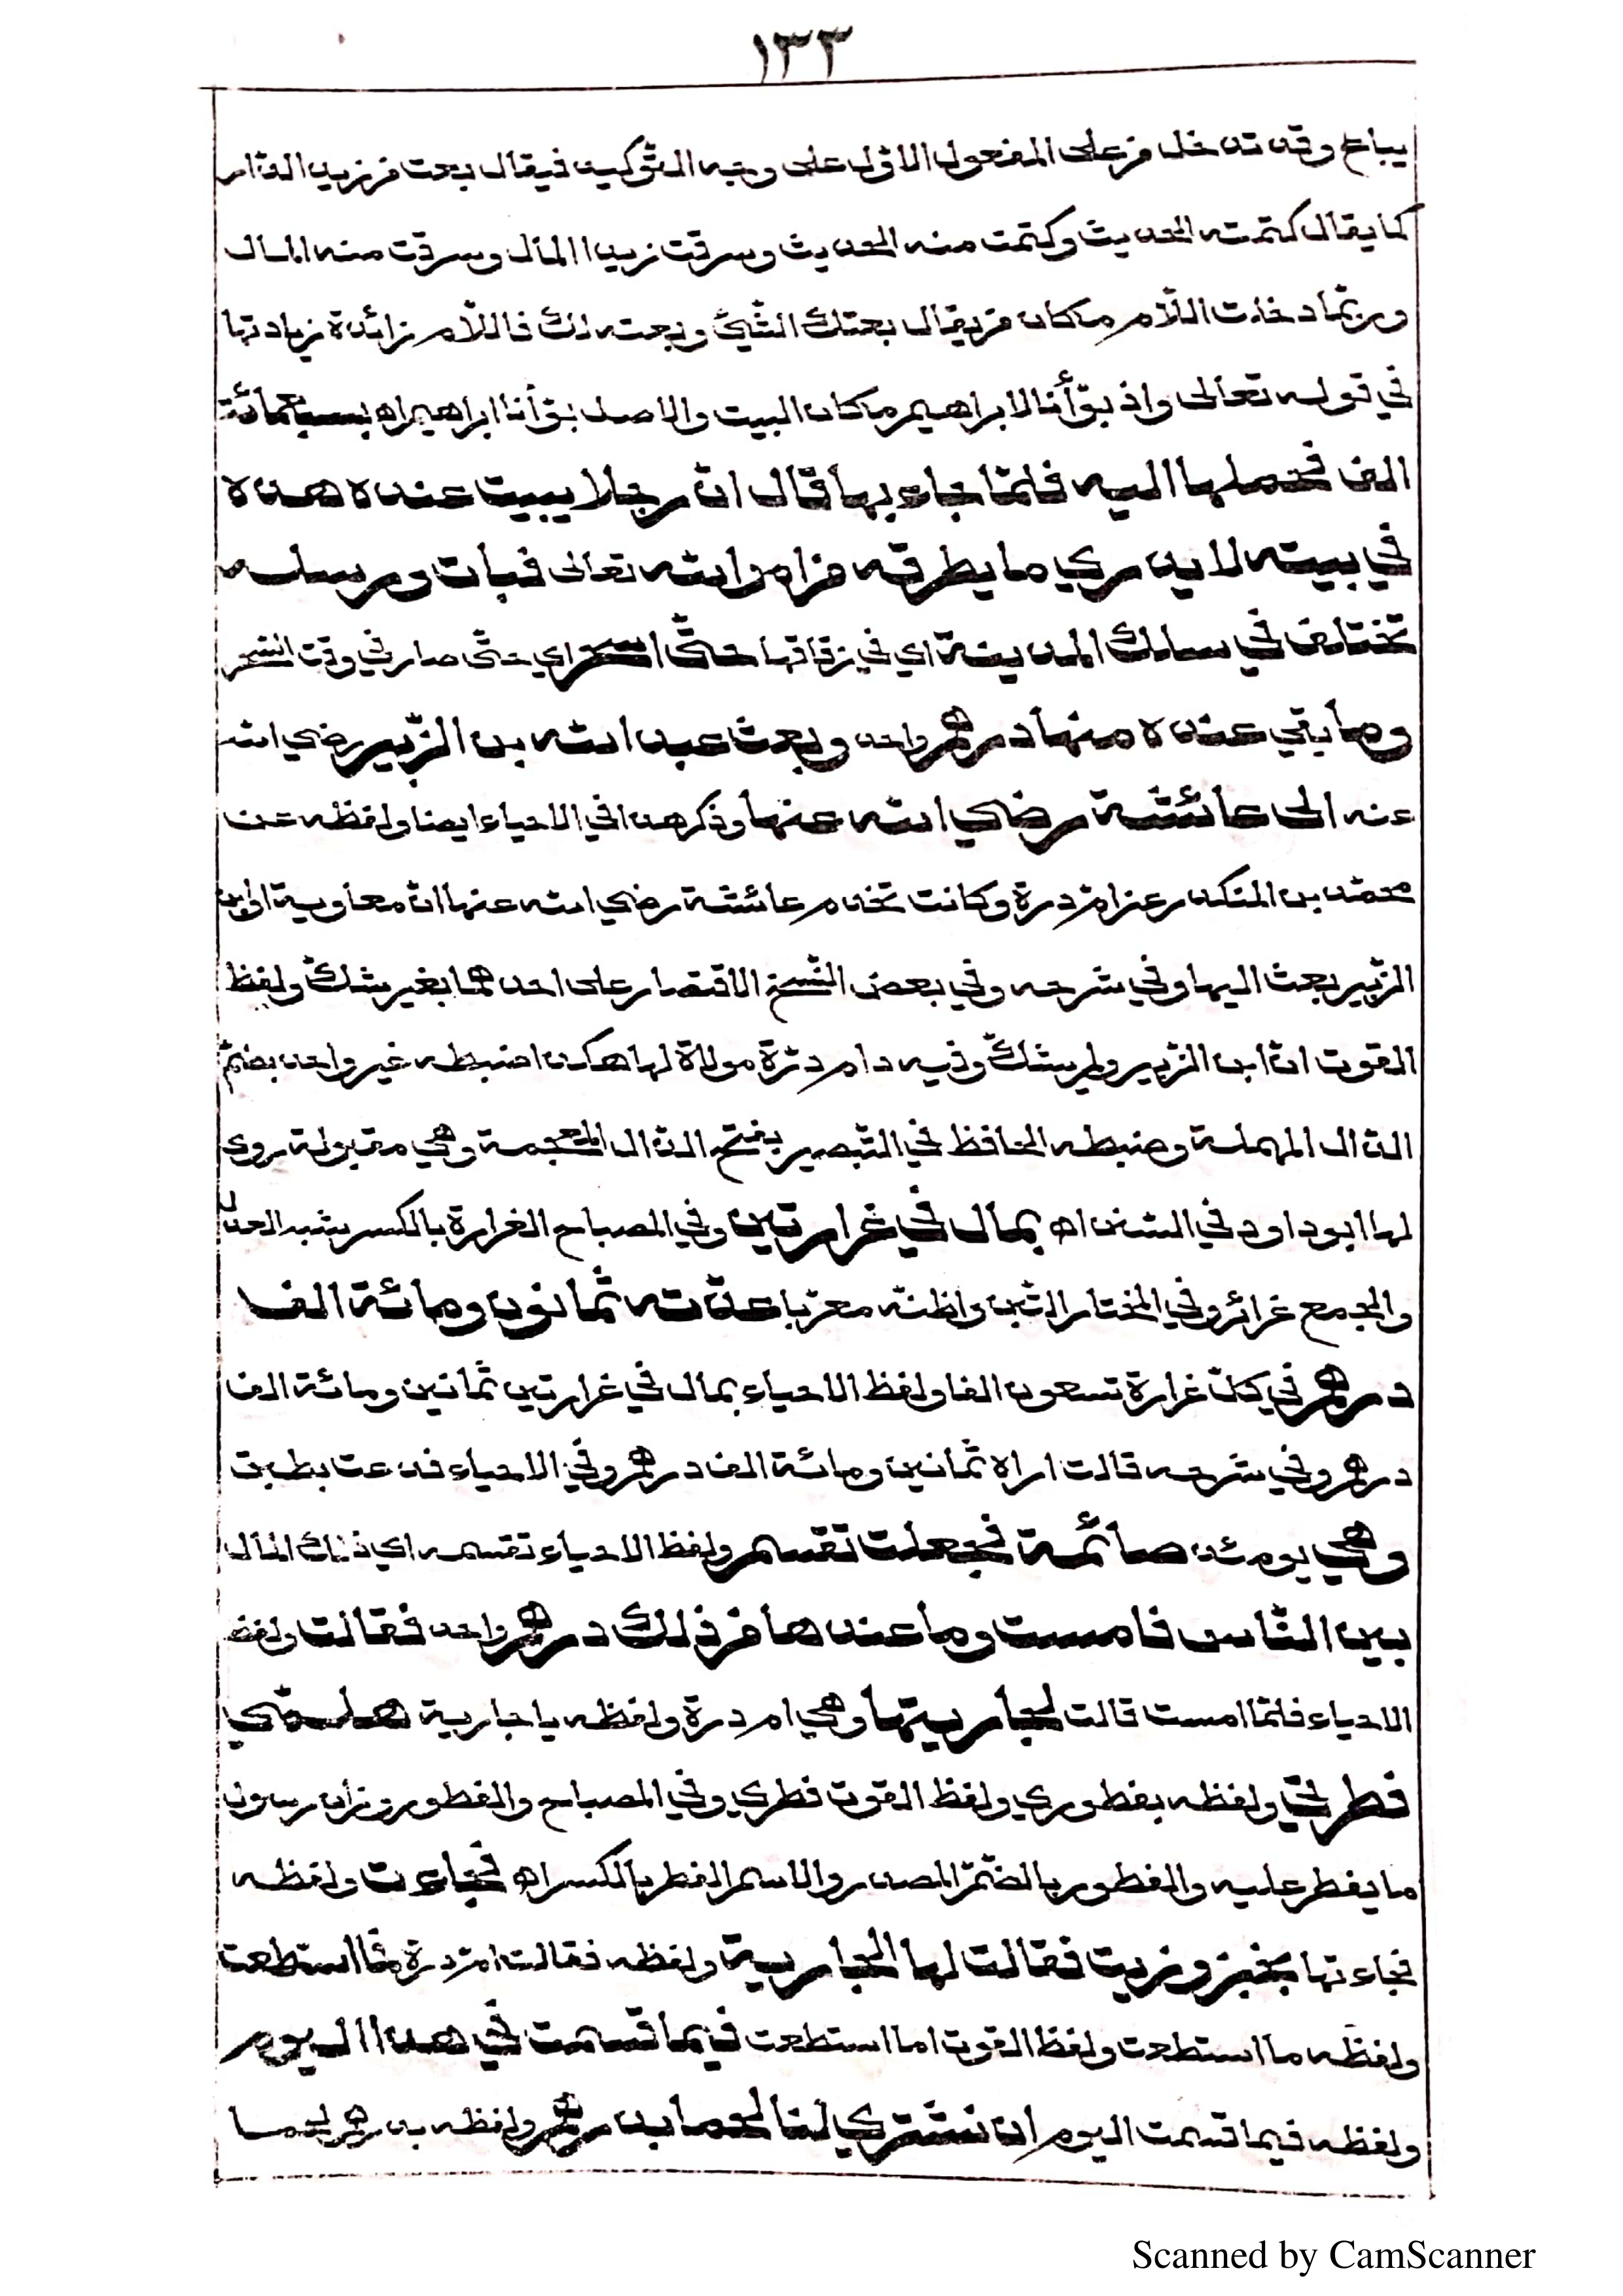 ١٣٣
يباع وقد تدخل من على المفعول الاوّل على وجه التّوكيد فيقال بعت من زيد الدّار
كما يقال كتمته الحديث وكتمت منه الحديث وسرقت زيدا المال وسرقت منه المال
وربّما دخلت اللّام مكان من يقال بعتك الشّيئ وبعته لك فاللّام زائدة زيادتها
في قوله تعالى واذ بوّأنا لابراهيم مكان البيت والاصل بوّأنا ابراهيم اه بسبعمائة
الف فحملها اليه فلمّا جاء بها قال انّ رجلا يبيت عنده هذه
في بيته لا يدري ما يطرقه من امر الله تعالى فبات ورسله
تختلف في سلك المدينة اي في زقاقها حتّى اسحر اي حتّى صار في وقت السّحر
وما بقي عنده منها درهم واحد وبعث عبد الله بن الزّبير رضي الله
عنه الى عائشة رضي الله عنها وذكر هذا في الاحياء ايضا ولفظه عن
محمّد بن المنكدر عن امّ درة وكانت تخدم عائشة رضي الله عنها انّ معاوية او ابن
الزّبير بعث اليها وفي شرحه وفي بعض النّسخ الاقتصار على احدهما بغير شكّ ولفظ
القوت انّ ابن الزّبير ولم يشكّ وفيه دام درّة مولاة لها هكذا ضبطه غير واحد بضمّ
الدّال المهملة وضبطه الحافظ في التّبصير بفتح الذّال المعجمة وهي مقبولة روى
لها ابو داود في السّنن اه بمال في غرارتين وفي المصباح الغرارة بالكسر شبه العدل
والجمع غرائر وفي المختار التّبن واظنّه معرّبا عدّته ثمانون ومائة الف
درهم في كلّ غرارة تسعون الفا ولفظ الاحياء بمال في غرارتين ثمانين ومائة الف
درهم وفي شرحه قالت اراه ثمانين ومائة الف درهم وفي الاحياء فدعت بطبق
وهي يومئذ صائمة فجعلت تقسم ولفظ الاحياء تقسمه اي ذلك المال
بين النّاس فامست وما عندها من ذلك درهم واحد فقالت ولفظ
الاحياء فلمّا امست قالت لجاريتها وهي ام درة ولفظه يا جارية هلمّي
فطرني ولفظه بفطوري ولفظ القوت فطري وفي المصباح والفطور وزان رسول
ما يفطر عليه والفطور بالضّمّ المصدر والاسم الفطر بالكسر اه فجاءت ولفظه
فجاءتها بخبز وزيت فقالت لها الجارية ولفظه فقالت امّ درة فما استطعت
ولفظه ما استطعت ولفظ القوت اما استطعت فيما قسمت في هذا اليوم
ولفظه فيما قسمت اليوم ان نشتري لنا لحما بدرهم ولفظه بدرهم لحما
Scanned by CamScanner